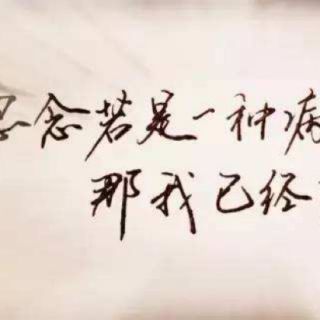 思念若是一种病
那我已经